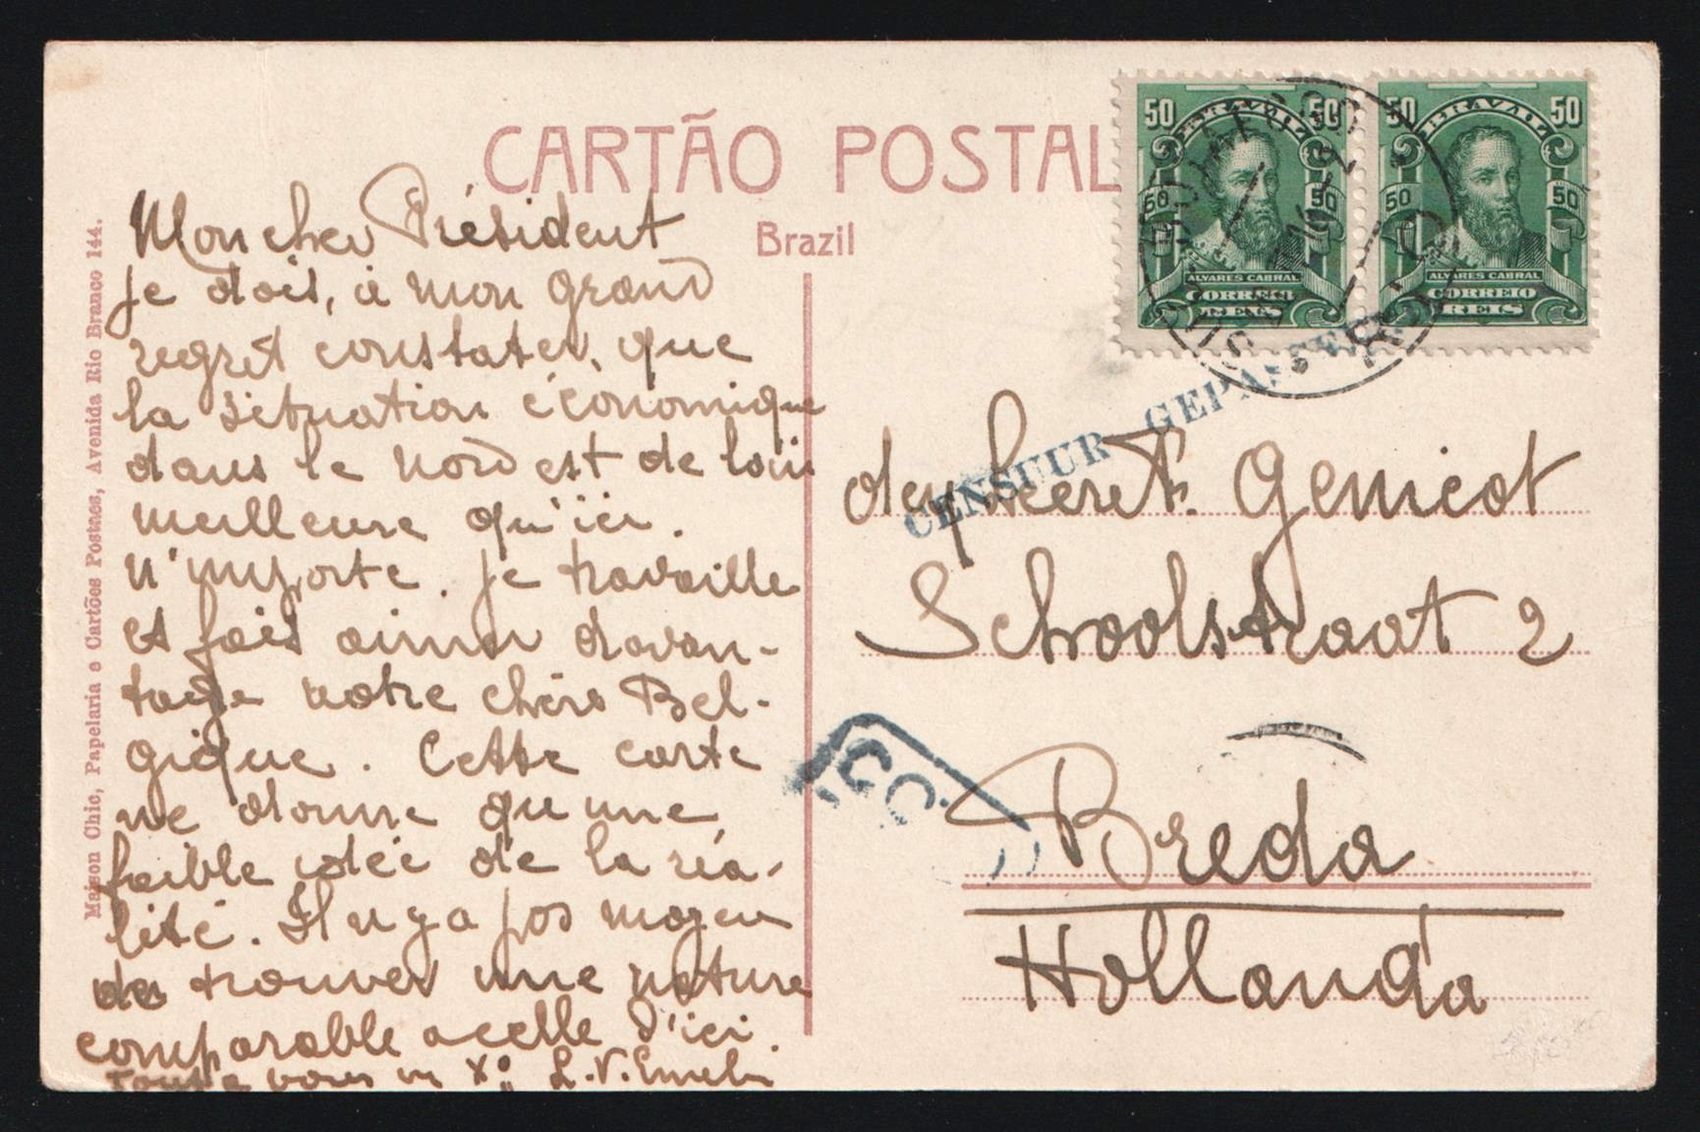 CARTÃO POSTAL
Brazil
50 BRAZIL 50
50 50
ALVARES CABRAL
CORREIO
REIS
50 BRAZIL 50
50 50
ALVARES CABRAL
CORREIO
REIS
CENSUUR GEPASSEERD
Maison Chic, Papelaria e Cartões Postaes, Avenida Rio Branco 144.
Mon cher Président
je dois, à mon grand
regrèt constater, que
la situation économique
dans le nord est de loin
meilleure qu'ici.
N'importe. Je travaille
et fais aimer davan-
tage notre chère Bel-
gique. Cette carte
ne donne qu'une
faible idée de la réa-
lité. Il n'y a pas moyen
de trouver une nature
comparable a celle d'ici.
Tout à vous L. V.
Genicot
Schoolstraat 2
Breda
Hollanda